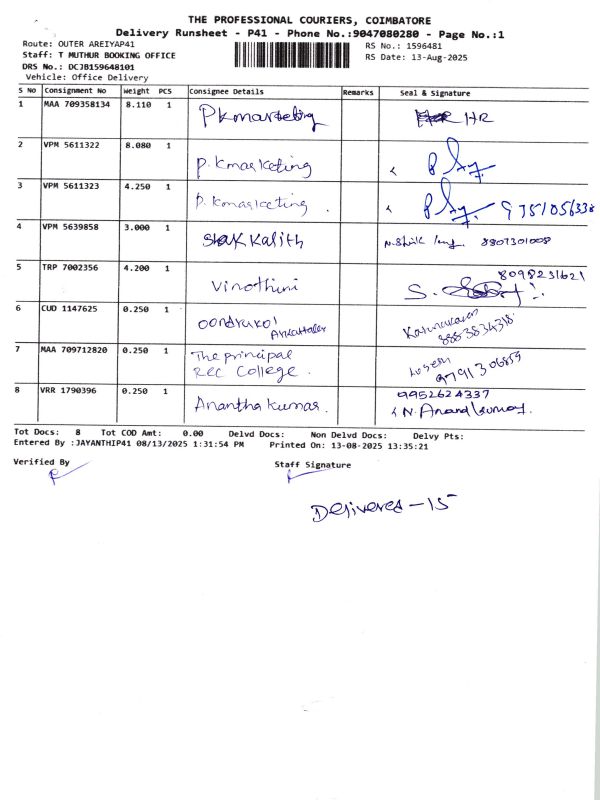 THE PROFESSIONAL COURIERS, COIMBATORE
Delivery Runsheet - P41 - Phone No.:9047080280 - Page No.:1
Route: OUTER AREIYAP41
RS No.: 1596481
Staff: T MUTHUR BOOKING OFFICE
RS Date: 13-Aug-2025
DRS No.: DCJB159648101
Vehicle: Office Delivery
S No Consignment No Weight PCS Consignee Details Remarks Seal & Signature
1 MAA 709358134 8.110 1 P K marketing HR
2 VPM 5611322 8.080 1 P. K marketing
3 VPM 5611323 4.250 1 P. K marketing . 9751056338
4 VPM 5639858 3.000 1 Kalith 8807301008
5 TRP 7002356 4.200 1 Vinothini 8098231621
6 CUD 1147625 0.250 1 Karunakaran 8883834318
7 MAA 709712820 0.250 1 The principal
REC College . 9791306859
8 VRR 1790396 0.250 1 Anantha kumar. 9952624337
N. Anand kumar.
Tot Docs: 8 Tot COD Amt: 0.00 Delvd Docs: Non Delvd Docs: Delvy Pts:
Entered By :JAYANTHIP41 08/13/2025 1:31:54 PM Printed On: 13-08-2025 13:35:21
Verified By Staff Signature
Delivered - 15